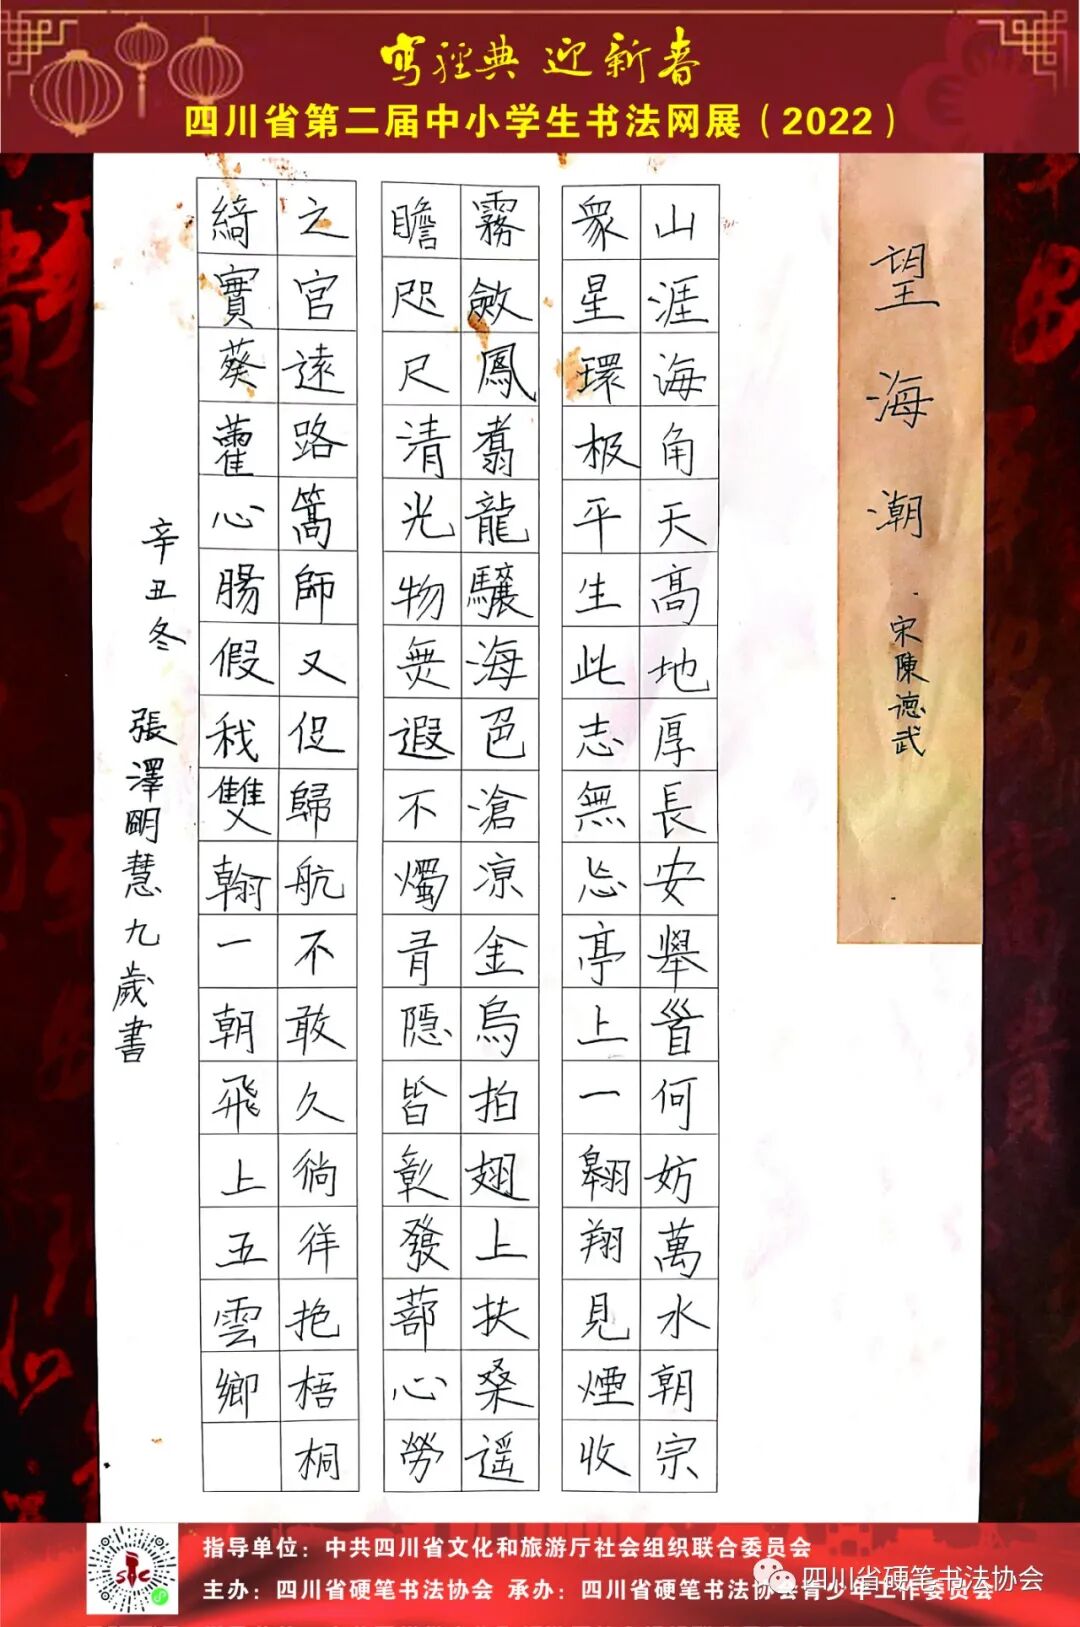 写经典 迎新春
四川省第二届中小学生书法网展（2022）
望海潮
宋陳德武
山涯海角天高地厚長安舉首何妨萬水朝宗
衆星環极平生此志無忘亭上一翱翔見煙收
霧斂鳳翥龍驤海色滄凉金烏拍翅上扶桑遥
瞻咫尺清光物無遐不燭有隠皆彰發蔀心勞
之官遠路篙師又促歸航不敢久徜徉抱梧桐
綺實葵藿心腸假我雙翰一朝飛上五雲鄉
辛丑冬
張澤明慧九歲書
指导单位：中共四川省文化和旅游厅社会组织联合委员会
主办：四川省硬笔书法协会 承办：四川省硬笔书法协会青少年工作委员会
四川省硬笔书法协会